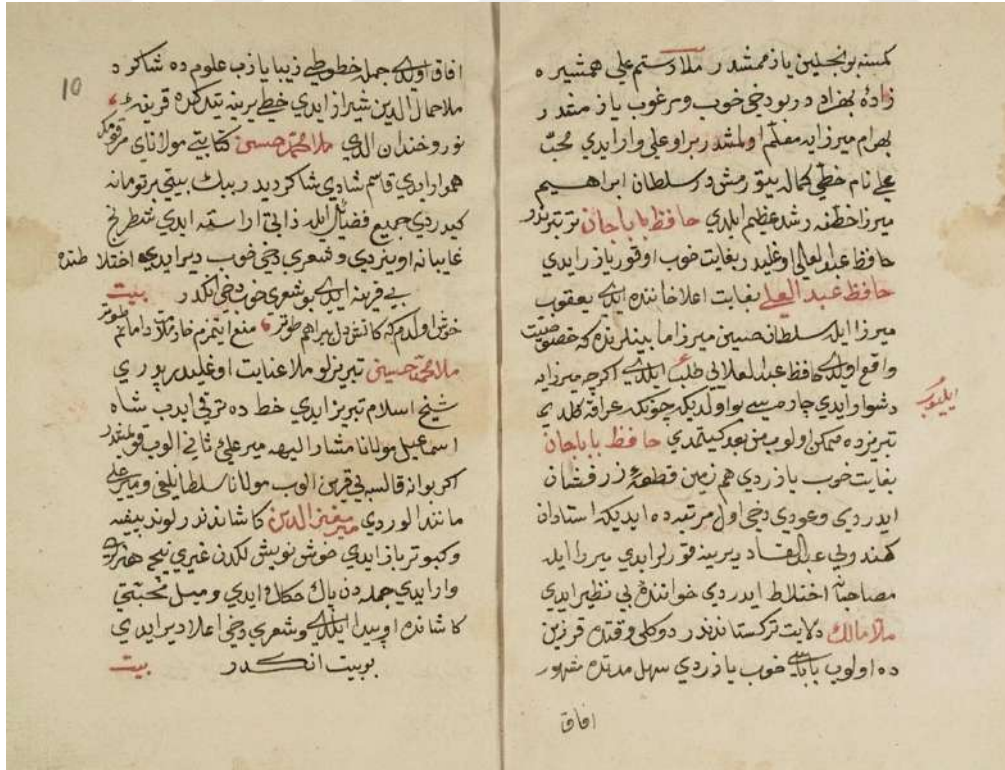 كمسنه بونجلين يازممشدر ملا رستم علي همشيره
زادهٔ بهزاد در بو دخي خوب و مرغوب يازمقدر
بهرام ميرزايه معلّم اولمشدر براوغلي وارايدي محبّ
علي نام خطّي كماله يتورمشدر سلطان ابراهيم
ميرزا خطنه رشد عظيم ايلدي حافظ باباجان تربتيزدر
حافظ عبد العالي اوغليدر بغايت خوب اوقور يازرايدي
حافظ عبد العلي بغايت اعلا خاننده ايدي يعقوب
ميرزا ايله سلطان حسين ميرزا مابينلرنده كه خصوصيت
واقع اولدي حافظ عبد العلايي طلب ايلدي اكرچه ميرزايه
دشوار ايدي چاره سي بو اولديكه چونكه عراقه كلدي
تبريزده متمكن اولوب من بعد كيتمدي حافظ باباجان
بغايت خوب يازردي هم زمين قطعه زرفشان
ايدردي و عودي دخي اول مرتبه ده ايديكه استادان
كهنه ولي عبد القادر يرينه قورلر ايدي ميرزا ايله
مصاحبانه اختلاط ايدردي خوانندهٔ بي نظير ايدي
ملا مالك ولايت تركستاندندر دوكلي وقتده قزوين
ده اولوب خوب يازردي سهل مدتده مشهور
افاق
10
افاق اولدي جمله خطوطي زيبا يازب علومده شاكرد
ملا جمال الدين شيرازايدي خط يرينه تيدكره قرينه
نور و خندان الدي ملا محمد حسين كتابتي مولاناي مرقومه
هموار ايدي قاسم شادي شاكرديدر بيك بيتي برتومانه
كيدردي جميع فضايل ايله ذاتي اراسته ايدي شطرنج
غايبانه اوينردي و شعري دخي خوب ديرايدي اختلاطنده
بي قرينه ايدي بو شعري خوب دخي انكدر بيت
خوش اولدم كه كانش دل براهم طوتر منع ايتمزم خار ملامت دامانم طوتر
ملا محمد حسين تبريزلو ملا عنايت اوغليدر پدري
شيخ اسلام تبريز ايدي خط ده ترقي ايدب شاه
اسماعيل مولانا مشار اليهه مير علي ثاني الوب قويمشدر
اكر بوانه قالسه يي قرين الوب مولانا سلطانعلي و مير علي
مانند الوردي مير معز الدين كاشاندندر لوند پيشه
و كبوترباز ايدي خوش نويسلكدن غيري نيجه هنرلر
وارايدي جمله دن پاك حكاك ايدي و ميل محبتي
كاشانده او پيدا ايلدي و شعري دخي اعلا ديرايدي
بو بيت انكدر بيت